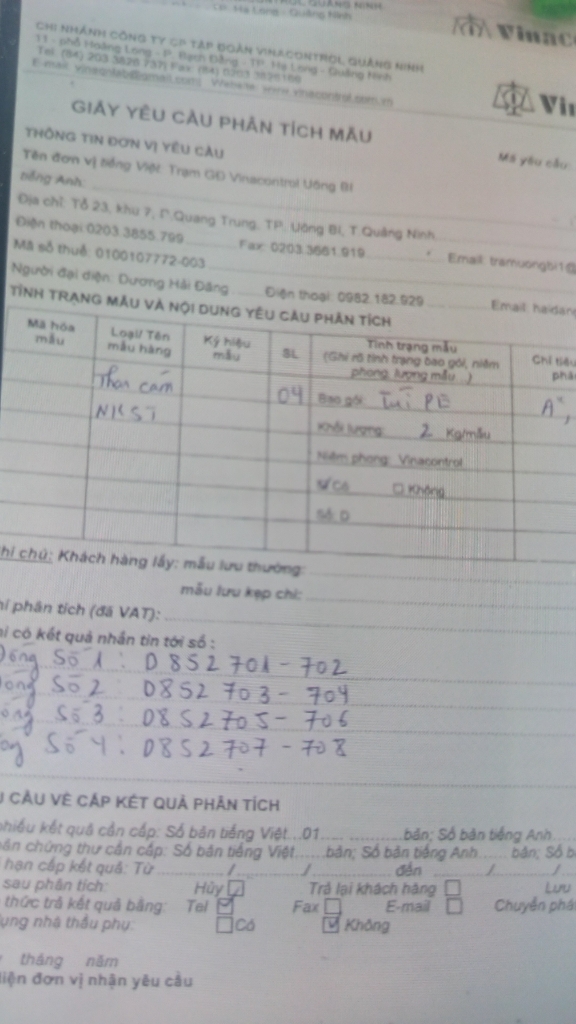 TP. Hạ Long - Quảng Ninh
CHI NHÁNH CÔNG TY CP TẬP ĐOÀN VINACONTROL QUẢNG NINH
11 - phố Hoàng Long - P. Bạch Đằng - TP. Hạ Long - Quảng Ninh
Tel: (84) 203 3826 737| Fax: (84) 0203 3826166
Website: www.vinacontrol.com.vn
Vinaco
Vin
GIẤY YÊU CẦU PHÂN TÍCH MẪU
Mã yêu cầu:
THÔNG TIN ĐƠN VỊ YÊU CẦU
Tên đơn vị tiếng Việt: Trạm GĐ Vinacontrol Uông Bí
tiếng Anh:
Địa chỉ: Tổ 23, khu 7, P.Quang Trung, TP. Uông Bí, T.Quảng Ninh
Điện thoại:0203.3855.799 Fax: 0203.3661.919 Email: tramuongbi1@
Mã số thuế: 0100107772-003
Người đại diện: Dương Hải Đăng Điện thoại: 0982.182.929 Email: haidang
TÌNH TRẠNG MẪU VÀ NỘI DUNG YÊU CẦU PHÂN TÍCH
Mã hóa mẫu Loại/ Tên mẫu hàng Ký hiệu mẫu SL Tình trạng mẫu (Ghi rõ tình trạng bao gói, niêm phong, lượng mẫu ..) Chỉ tiêu phâ
Than cám 04 Bao gói: Túi PE
Khối lượng: 2 Kg/mẫu
Niêm phong: Vinacontrol
Có Không
Số: D
hi chú: Khách hàng lấy: mẫu lưu thường:
mẫu lưu kẹp chì:
í phân tích (đã VAT):
i có kết quả nhắn tin tới số :
Đống Số 1 : D852701-702
ống Số 2 : D852703-704
ống Số 3 : D852705-706
ống Số 4 : D852707-708
CẦU VỀ CẤP KẾT QUẢ PHÂN TÍCH
hiếu kết quả cần cấp: Số bản tiếng Việt...01 bản; Số bản tiếng Anh
ản chứng thư cần cấp: Số bản tiếng Việt bản; Số bản tiếng Anh bản; Số b
i hạn cấp kết quả: Từ / / đến / /
sau phân tích: Hủy Trả lại khách hàng Lưu
thức trả kết quả bằng: Tel Fax E-mail Chuyển phá
ụng nhà thầu phụ: Có Không
tháng năm
iện đơn vị nhận yêu cầu